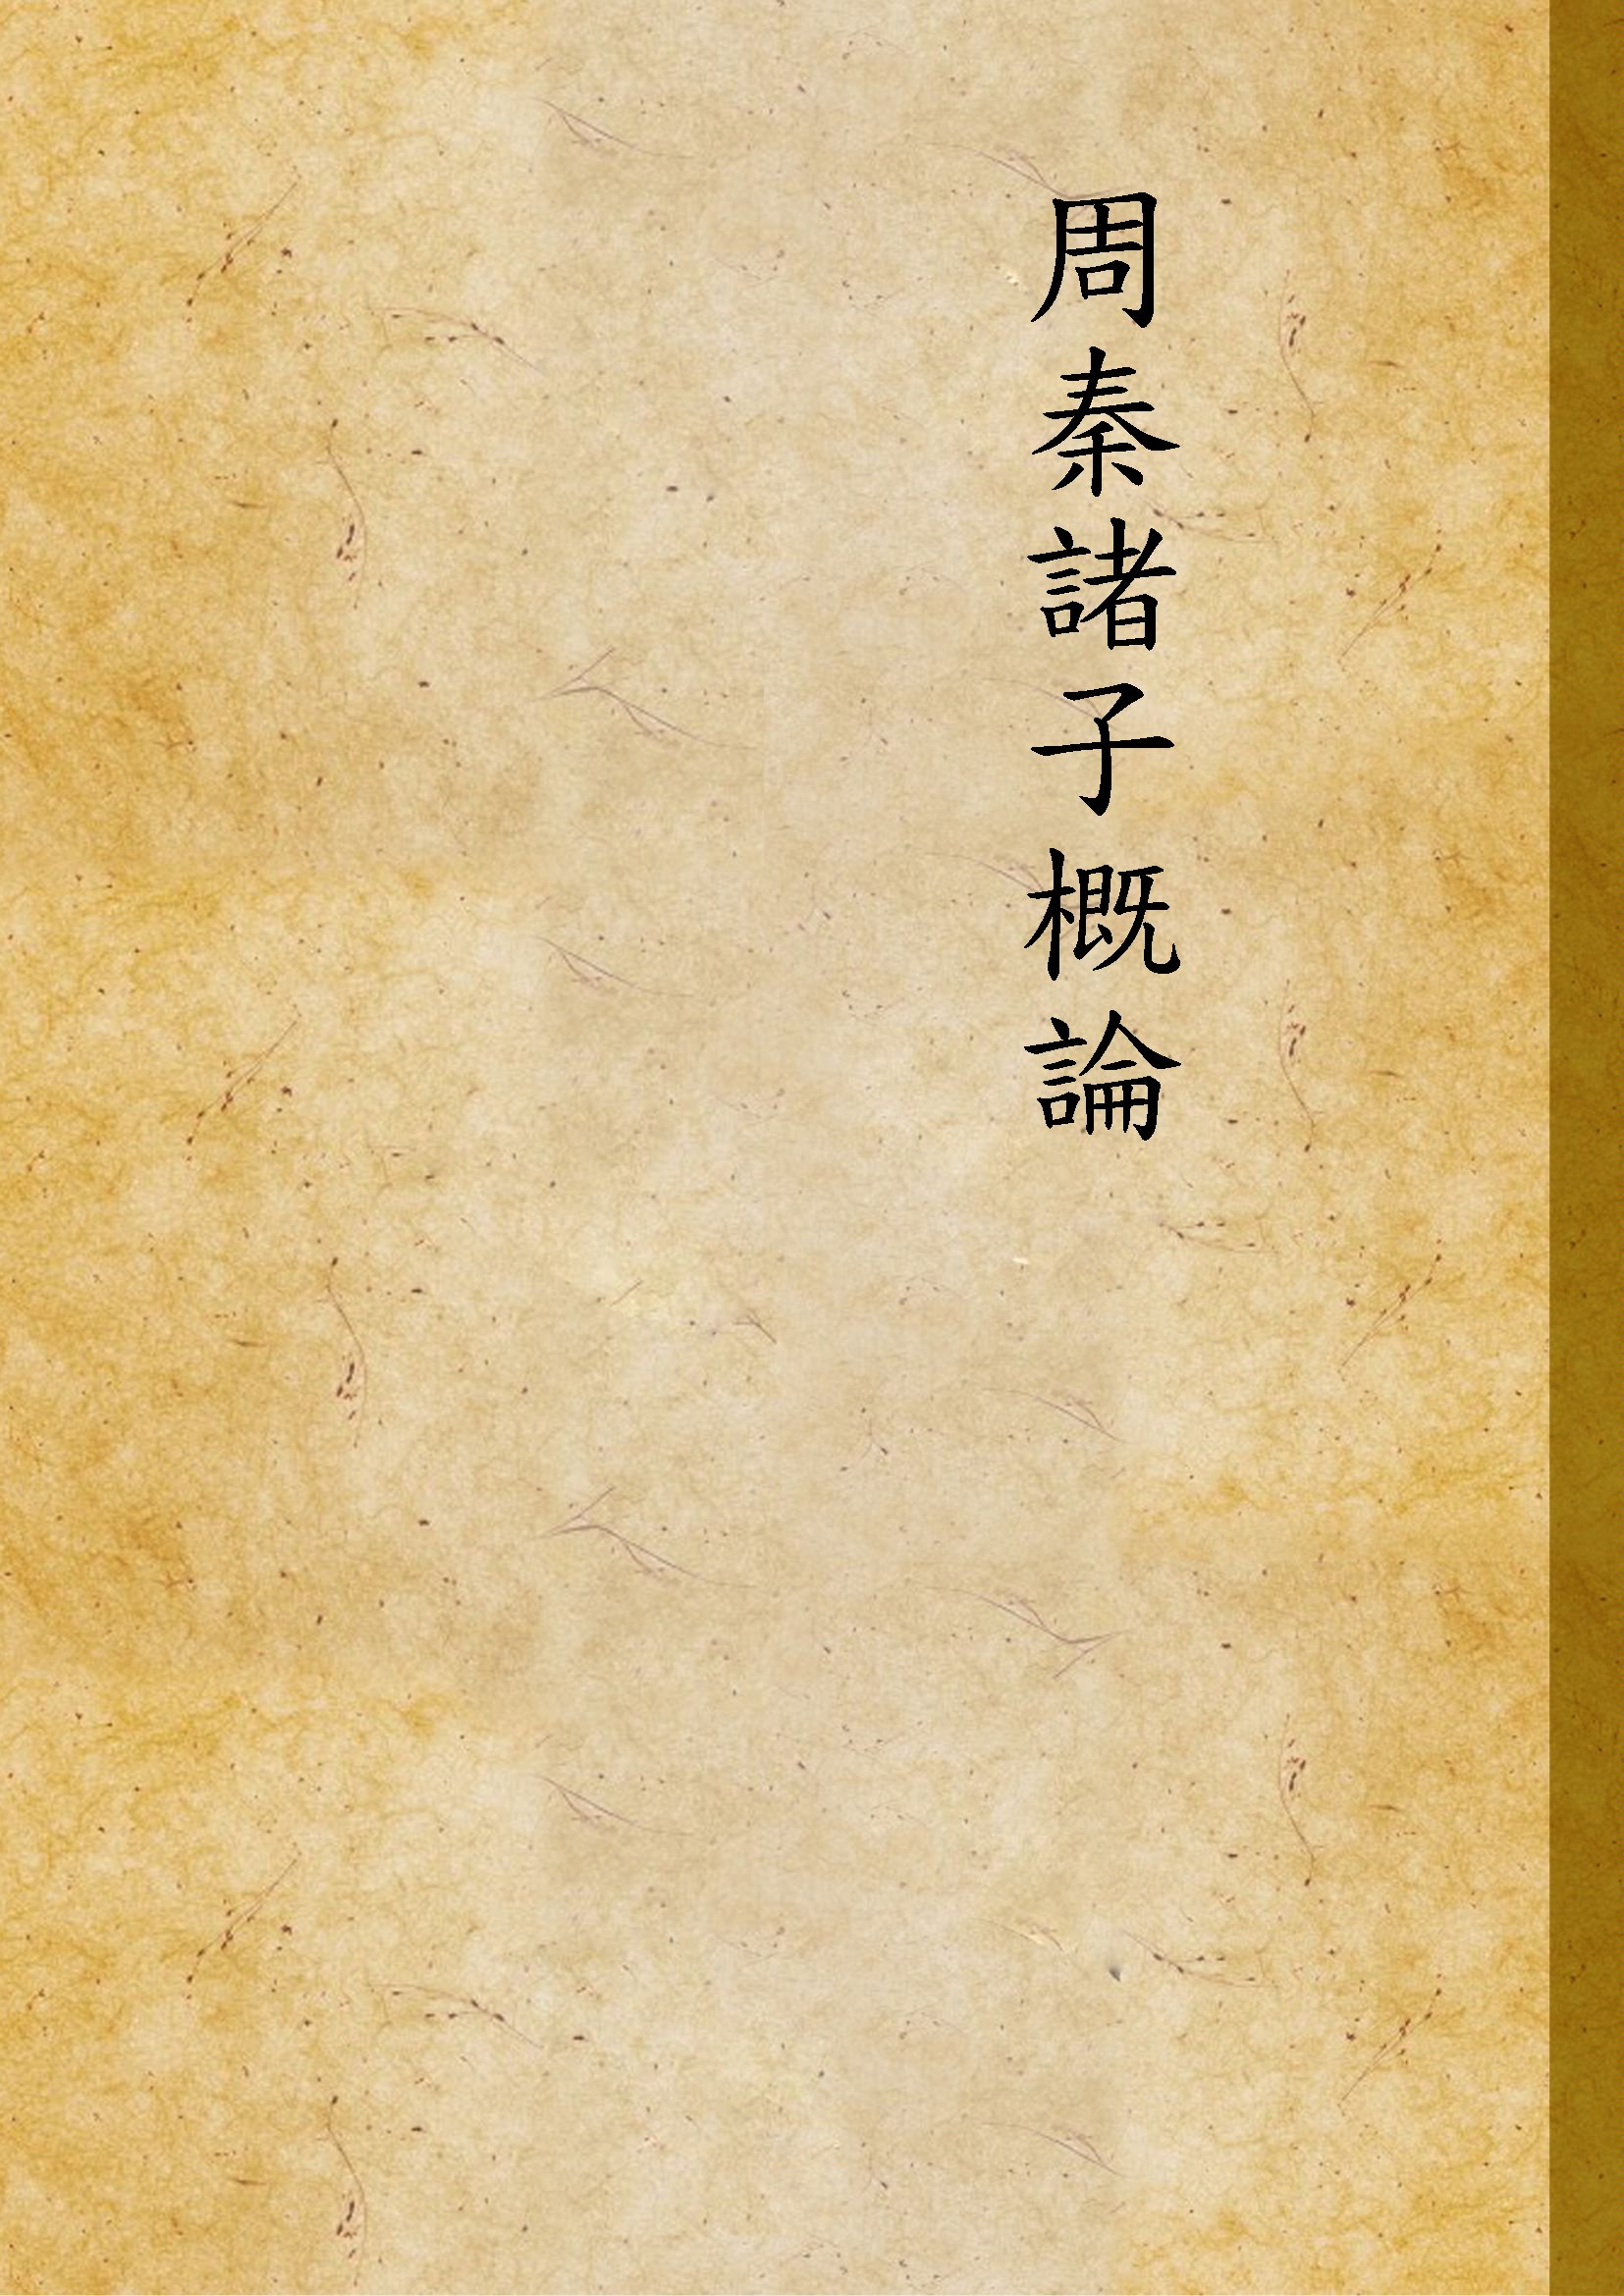 周秦諸子概論